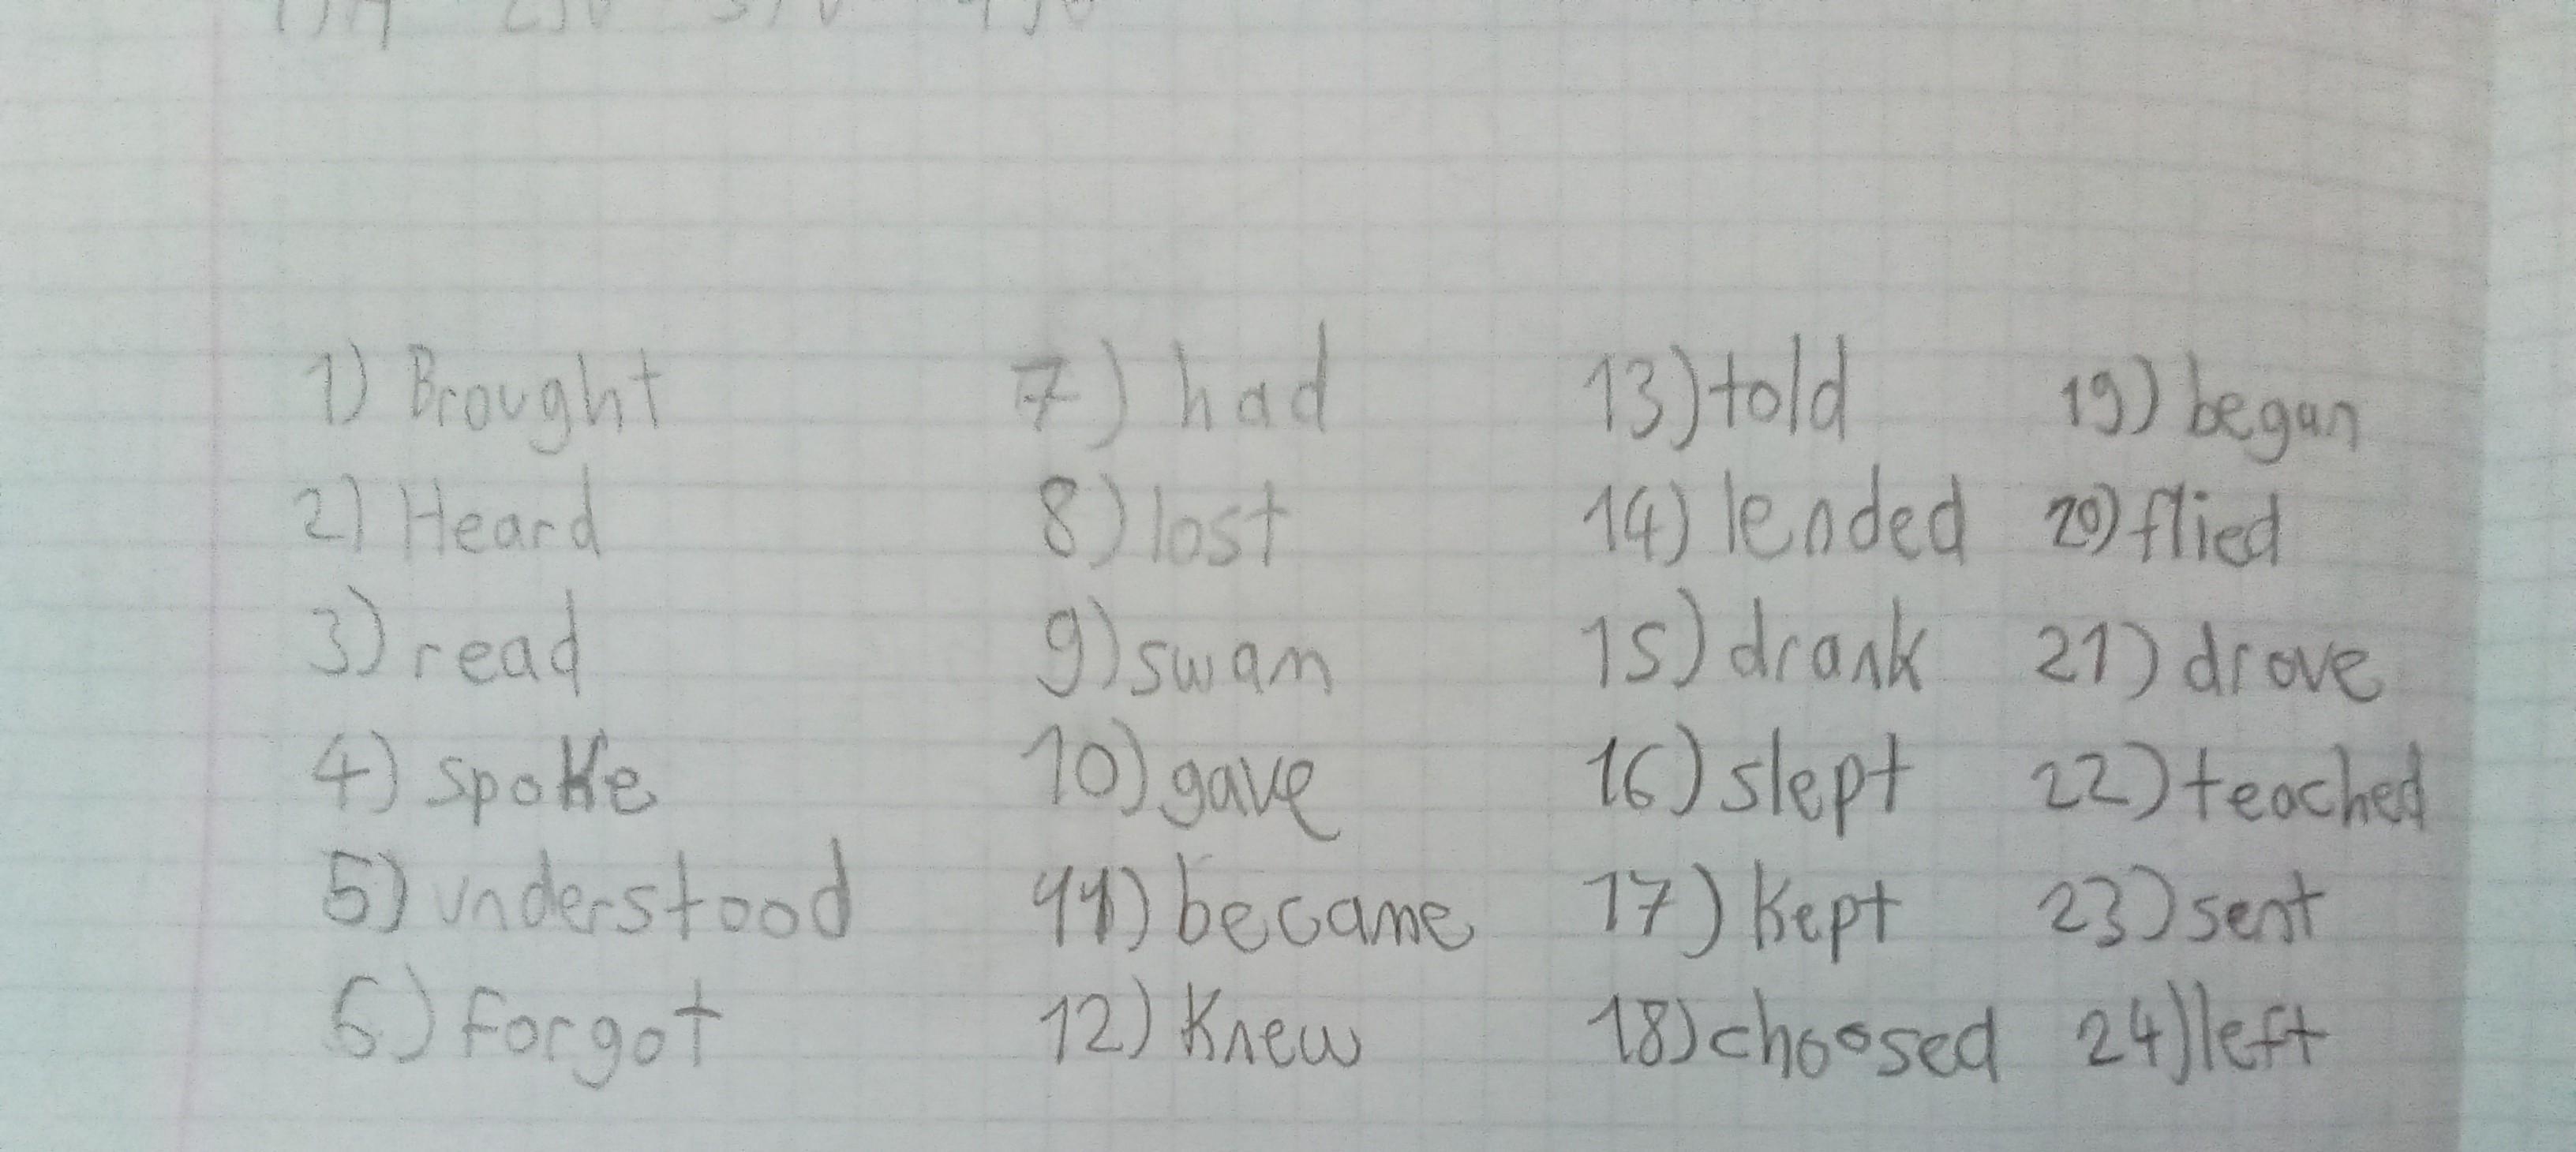 1) Brought
2) Heard
3) read
4) spoke
5) understood
6) forgot
7) had
8) lost
9) swam
10) gave
11) became
12) Knew
13) told
14) lended
15) drank
16) slept
17) Kept
18) choosed
19) began
20) flied
21) drove
22) teached
23) sent
24) left